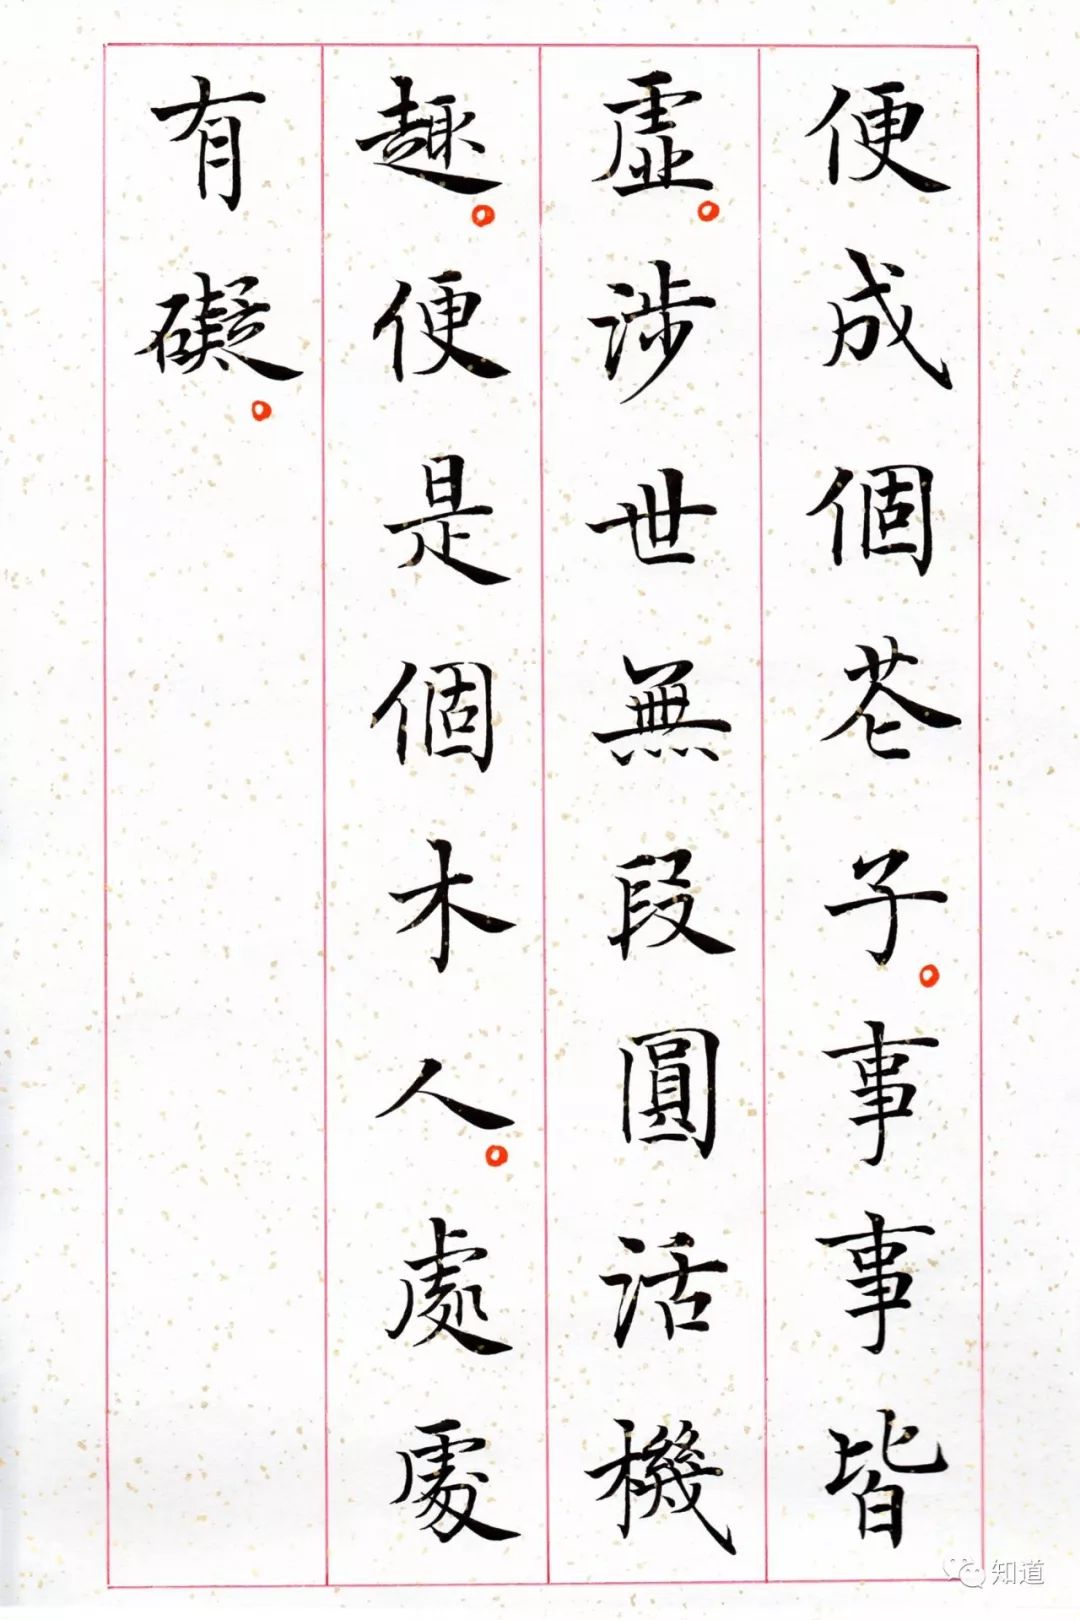 便成個花子。事事皆
虛。涉世無段圓活機
趣。便是個木人。處處
有礙。
知道